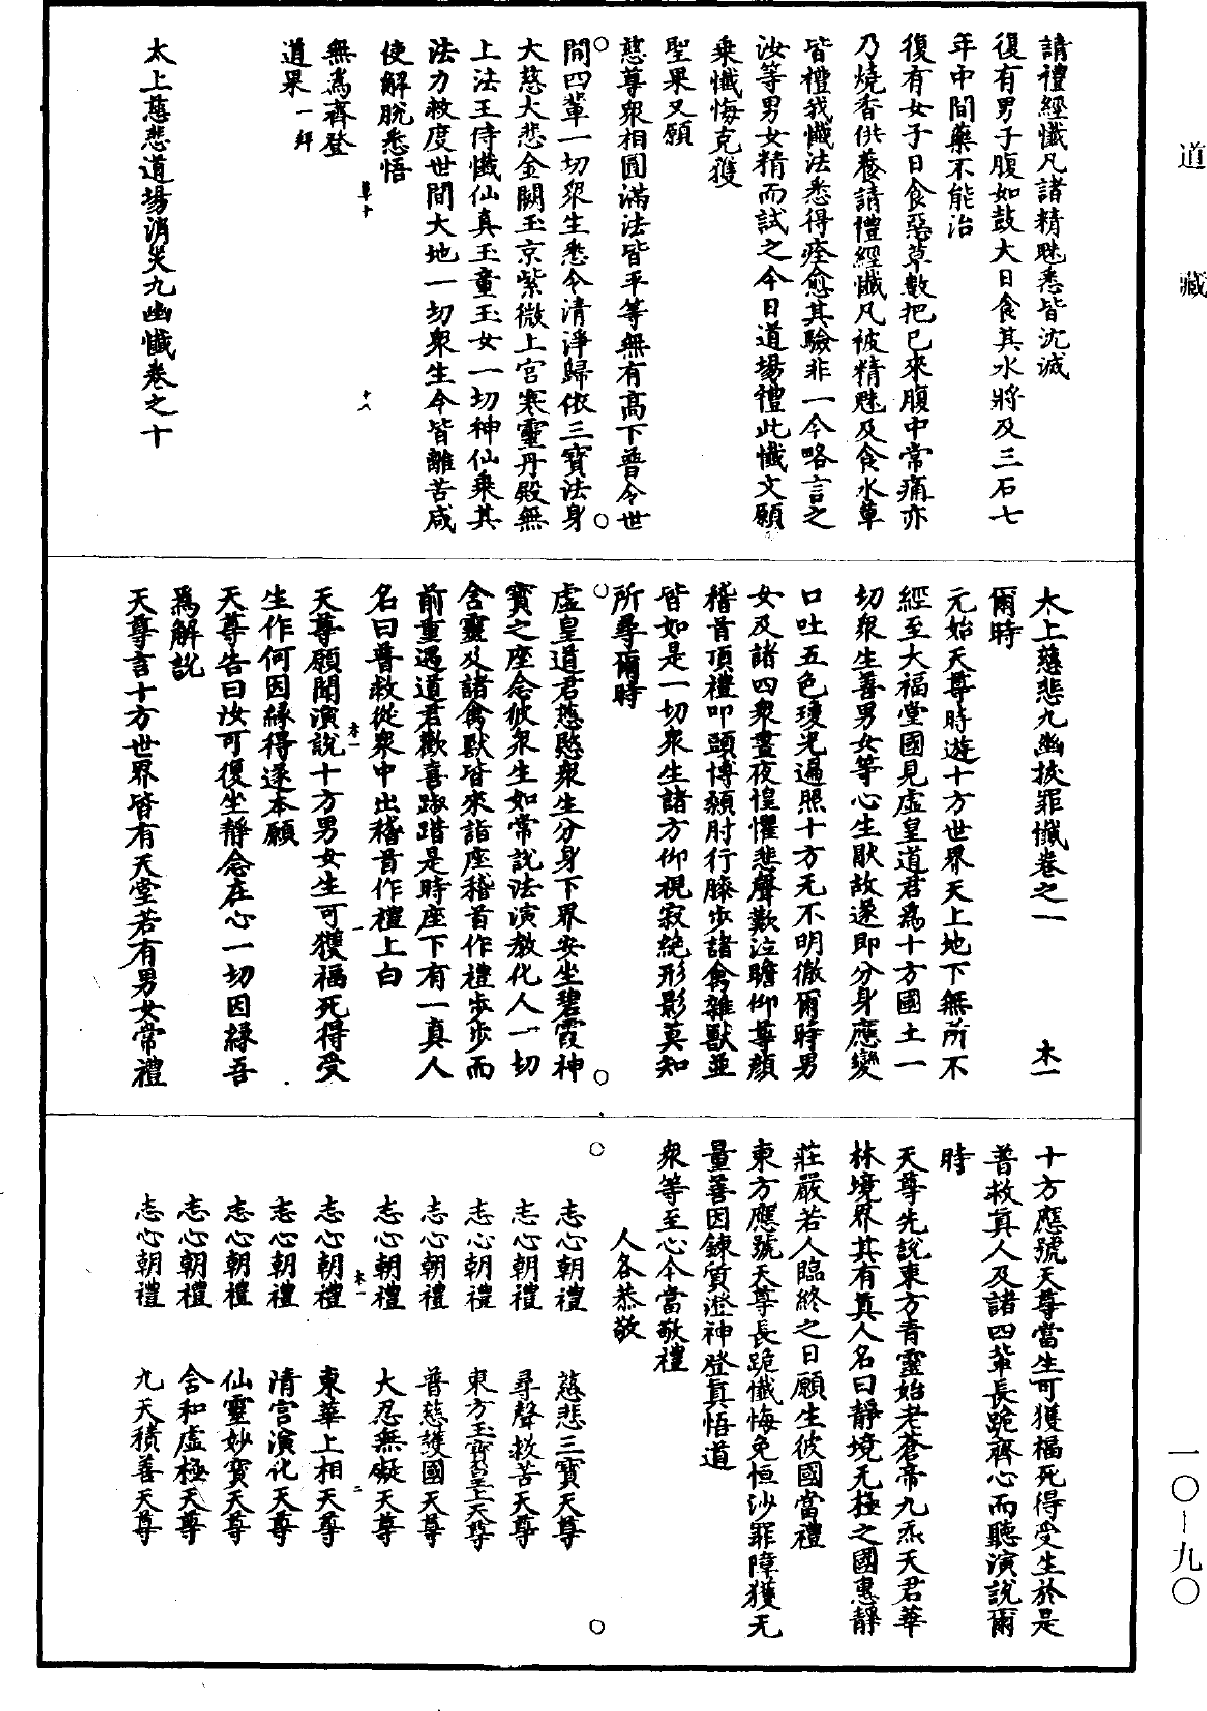 道藏
請禮經懺凡諸精魅悉皆沈滅
復有男子腹如鼓大日食其水將及三石七
年中間藥不能治
復有女子日食惡草數把已來腹中常痛亦
乃燒香供養請禮經懺凡被精魅及食水草
皆禮我懺法悉得痊愈其驗非一今略言之
汝等男女精而試之今日道場禮此懺文願
乘懺悔克獲
聖果又願
慈尊衆相圓滿法皆平等無有高下普令世
間四輩一切衆生悉令清淨歸依三寶法身
大慈大悲金闕玉京紫微上宮寒靈丹殿無
上法王侍懺仙真玉童玉女一切神仙乘其
法力救度世間大地一切衆生令皆離苦咸
使解脫悉悟
草十 十八
無爲齊登
道果一拜
太上慈悲道場消災九幽懺卷之十
太上慈悲九幽拔罪懺卷之一 木一
爾時
元始天尊時遊十方世界天上地下無所不
經至大福堂國見虛皇道君爲十方國土一
切衆生善男女等心生猒故遂即分身應變
口吐五色瓊光遍照十方无不明徹爾時男
女及諸四衆晝夜惶懼悲聲歎泣瞻仰尊顏
稽首頂禮叩頭博頰肘行膝步諸禽雜獸並
皆如是一切衆生諸方仰視寂絕形影莫知
所尋爾時
虛皇道君慈愍衆生分身下界安坐碧霞神
寶之座念彼衆生如常說法演教化人一切
含靈及諸禽獸皆來詣座稽首作禮步步而
前重遇道君歡喜踧踖是時座下有一真人
名曰普救從衆中出稽首作禮上白
木一 一
天尊願聞演說十方男女生可獲福死得受
生作何因緣得遂本願
天尊告曰汝可復坐靜念在心一切因緣吾
爲解說
天尊言十方世界皆有天堂若有男女常禮
十方應號天尊當生可獲福死得受生於是
普救真人及諸四輩長跪齊心而聽演說爾
時
天尊先說東方青靈始老蒼帝九炁天君華
林境界其有真人名曰靜境无極之國惠靜
莊嚴若人臨終之日願生彼國當禮
東方應號天尊長跪懺悔免恒沙罪障獲无
量善因鍊質澄神登真悟道
衆等至心今當敬禮
人各恭敬
志心朝禮 慈悲三寶天尊
志心朝禮 尋聲救苦天尊
志心朝禮 東方玉寶皇上天尊
志心朝禮 普慈護國天尊
志心朝禮 大忍無礙天尊
木一 二
志心朝禮 東華上相天尊
志心朝禮 清宮演化天尊
志心朝禮 仙靈妙寶天尊
志心朝禮 含和虛極天尊
志心朝禮 九天積善天尊
一〇-九〇